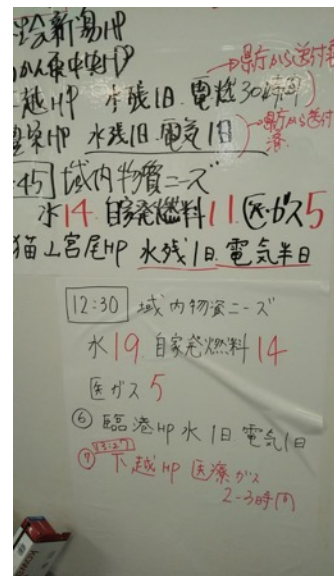 会新潟HP
かん東中央HP
越HP 水残1日.電燃30時間
県庁から送付
HP 水残1日.電気1日
県庁から送付
済
:45 域内物資ニーズ
水14 自家発燃料11 医.ガス5
猫山宮尾HP 水残1日.電気半日
12:30 域内物資ニーズ
水19 自家発燃料14
医ガス5
⑥ 臨港HP 水1日 電気1日
⑦ 下越HP 医療ガス
2-3時間